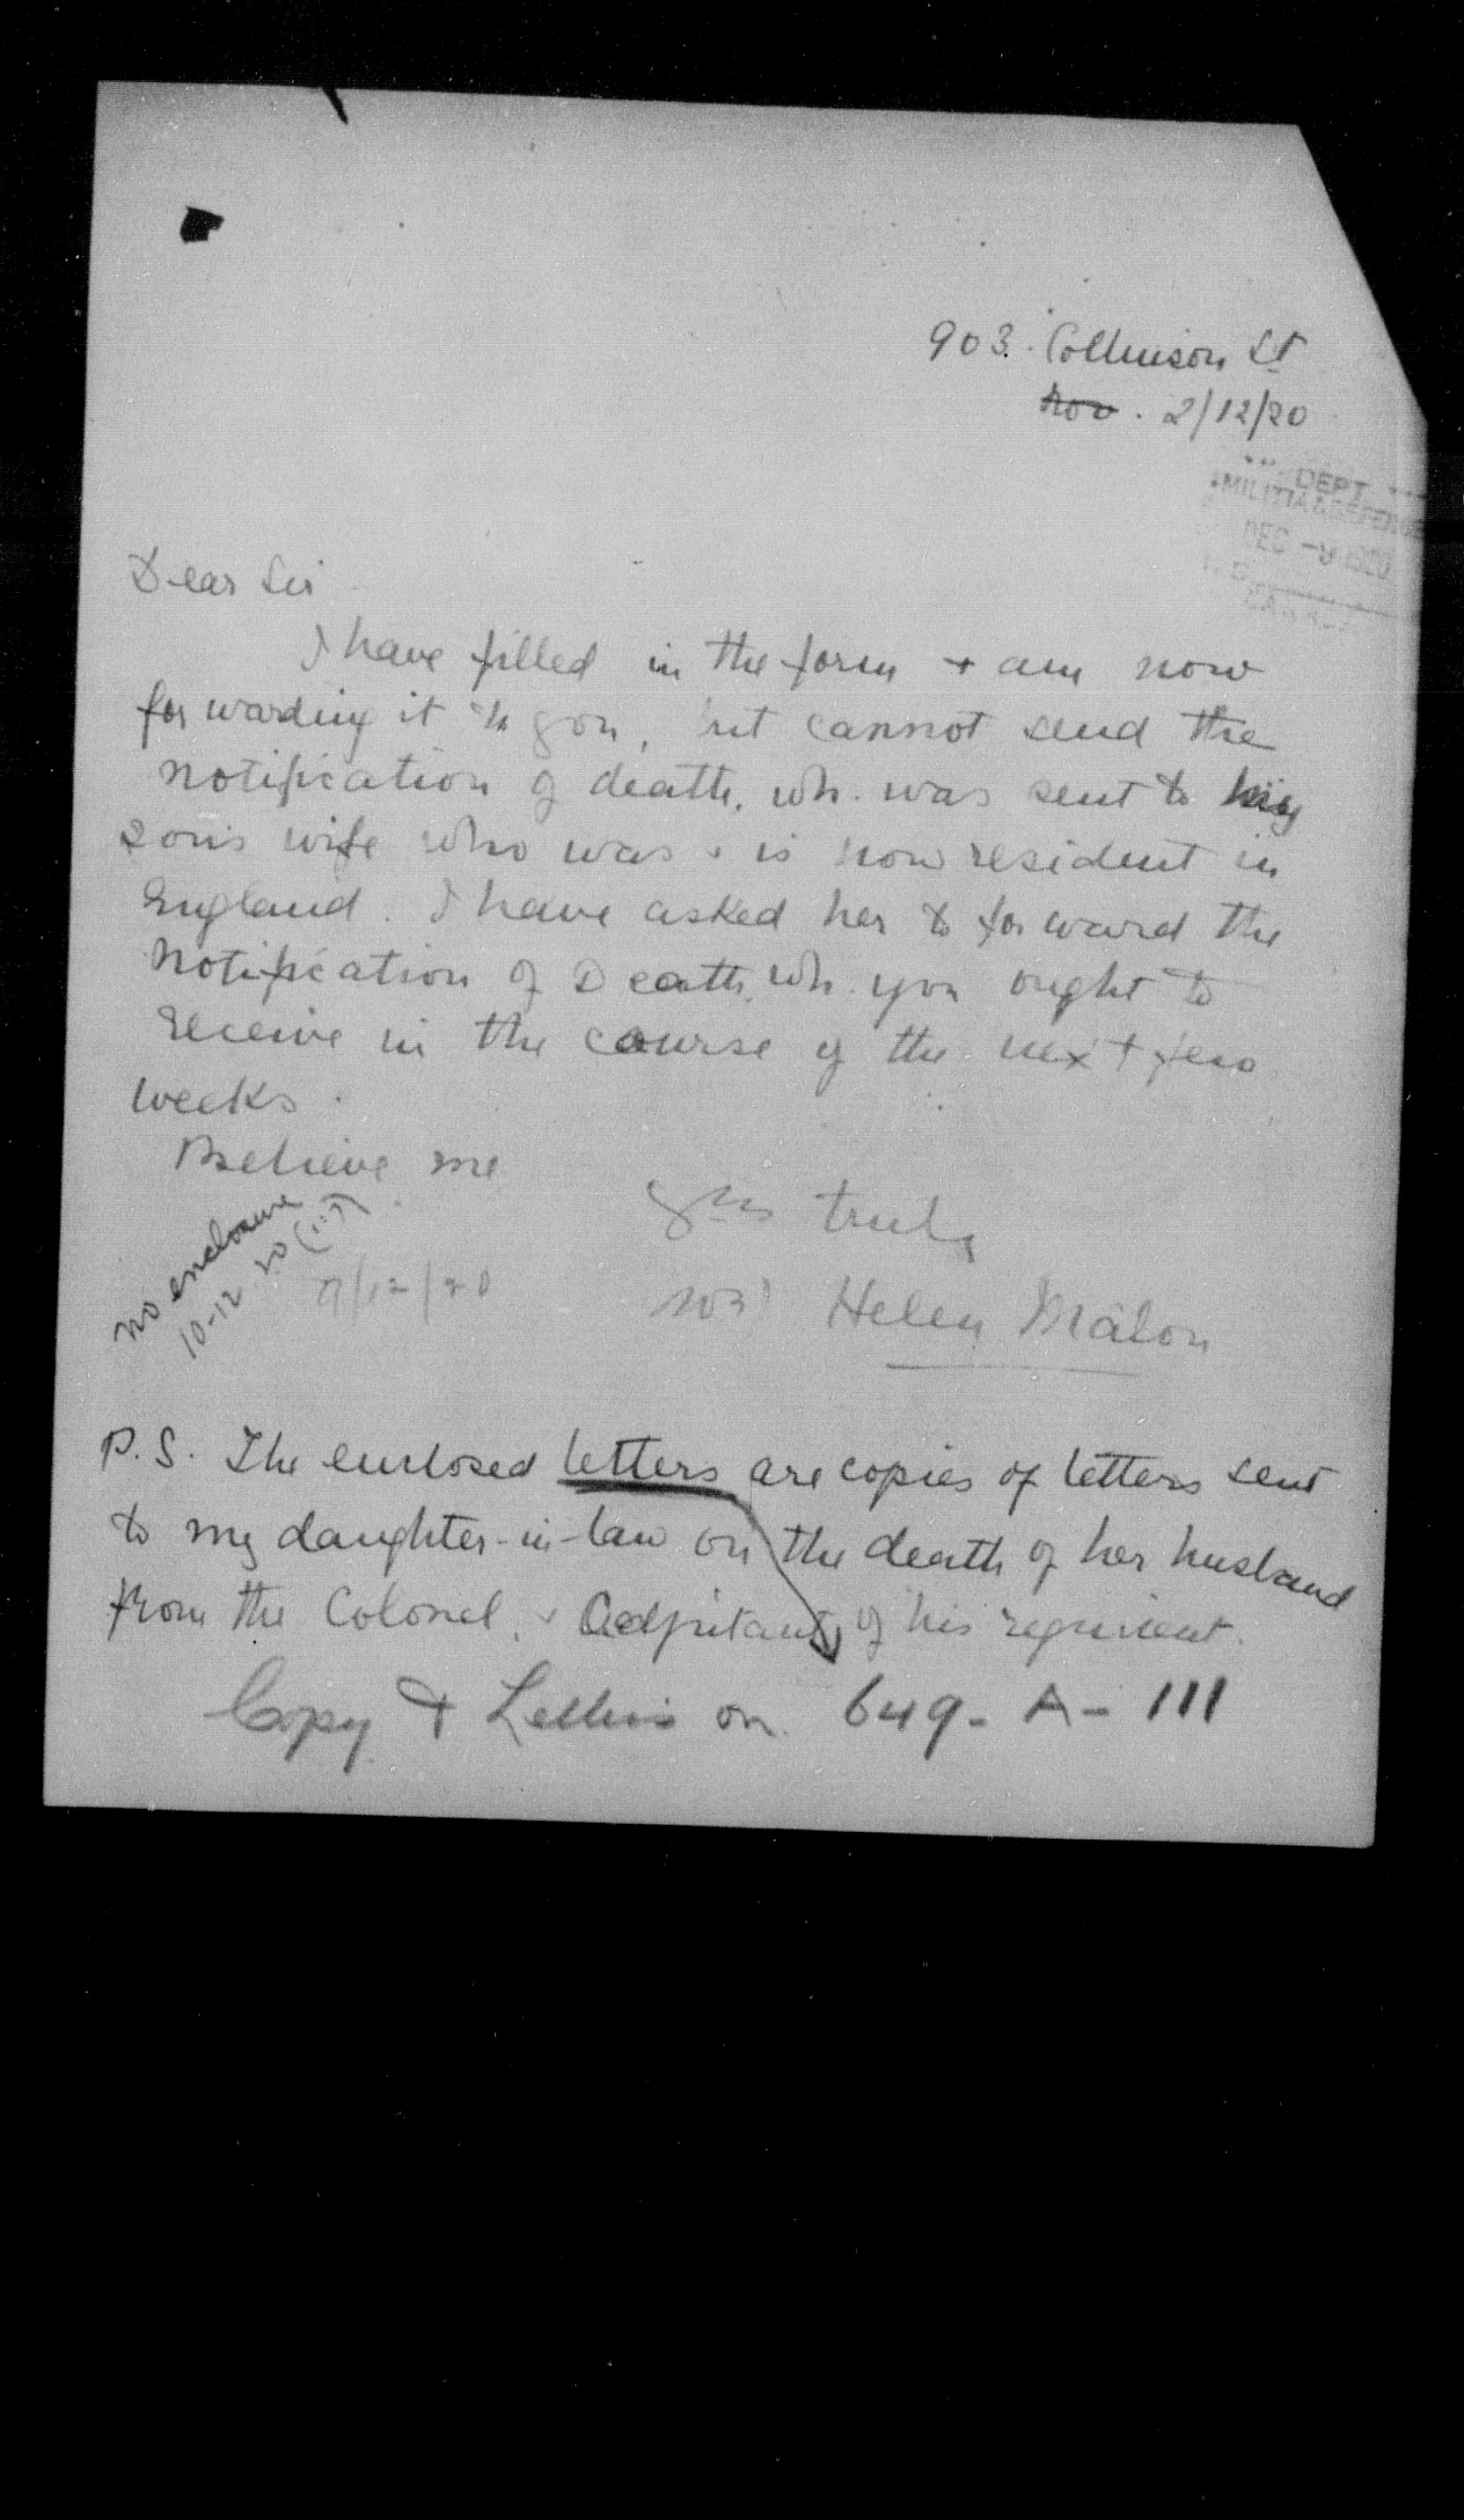 903. Collinson St
Nov. 2/12/20
DEPT
MILITIA & DEFENCE
DEC -9 1920
Dear Sir
I have filled in the form + am now
forwarding it to you, but cannot send the
notification of death, wh. was sent to my
son's wife who was + is now resident in
England. I have asked her to forward the
Notification of Death, wh. you ought to
receive in the course of the next few
weeks.
Believe me
yrs truly
Helen
no enclosure
10-12-20
9/12/20
P.S. The enclosed letters are copies of letters sent
to my daughter-in-law on the death of her husband
from the Colonel, + Adjutant, of his regiment.
Copy & Letters on 649-A-111